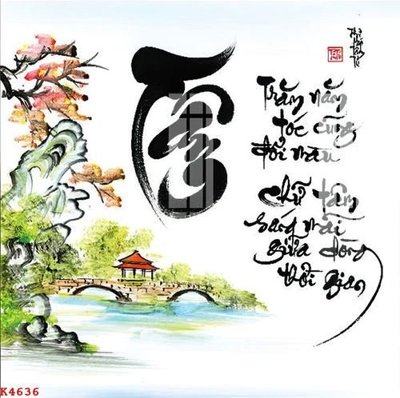 Tâm
Trăm năm
tóc cũng
đổi màu
chữ tâm
sáng mãi
giữa dòng
thời gian
K4636